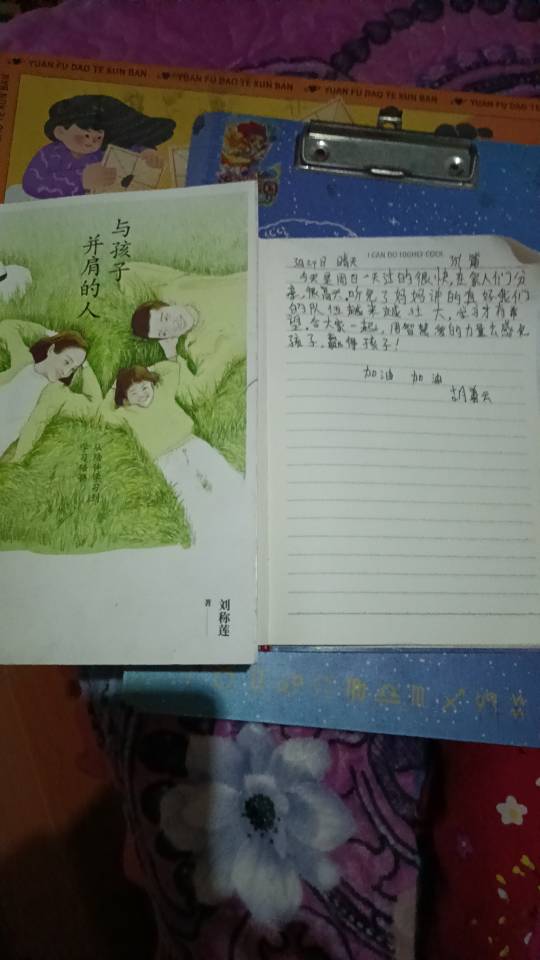 YUAN FU DAO TE XUN BAN
YUAN FU DAO TE XUN BAN
YUAN FU DAO TE XUN BAN
YUAN FU DAO TE XUN BAN
与孩子
并肩的人
从陪伴
学习
刘称莲
著
I CAN DO HIGHLY COOL
日 晴天
今天是周日一天过的很快,在家人们分
亲,很高兴,听见了妈妈讲的真好我们
的队伍越来越壮大,学习才有希
望,合大家一起,用智慧爱的力量去感化
孩子,赢得孩子!
加油 加油